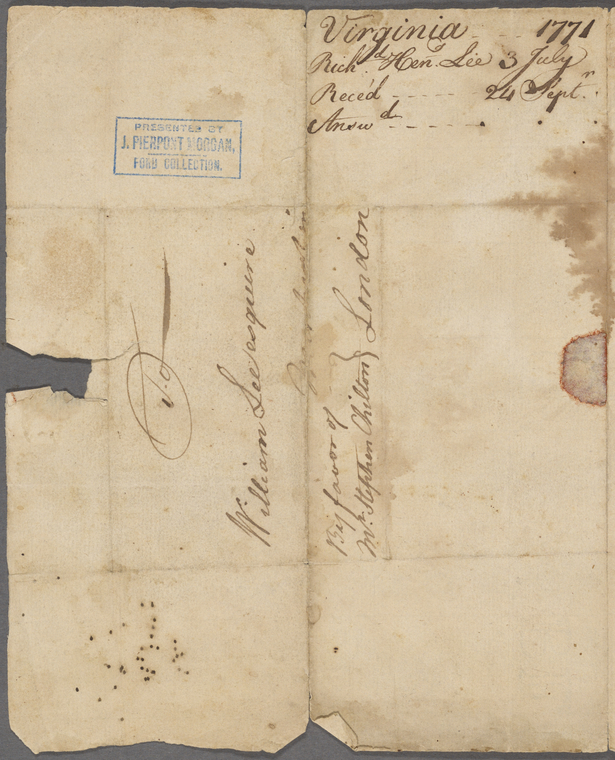 Virginia - - 1771
Rich.d Hen.y Lee 3 July
Reced - - - - - 24 Sept.r
Answ.d - - - - - .
PRESENTED BY
J. PIERPONT MORGAN,
FORD COLLECTION.
To
William Lee esquire
London
By favor of
Mr. Stephen Chilton }